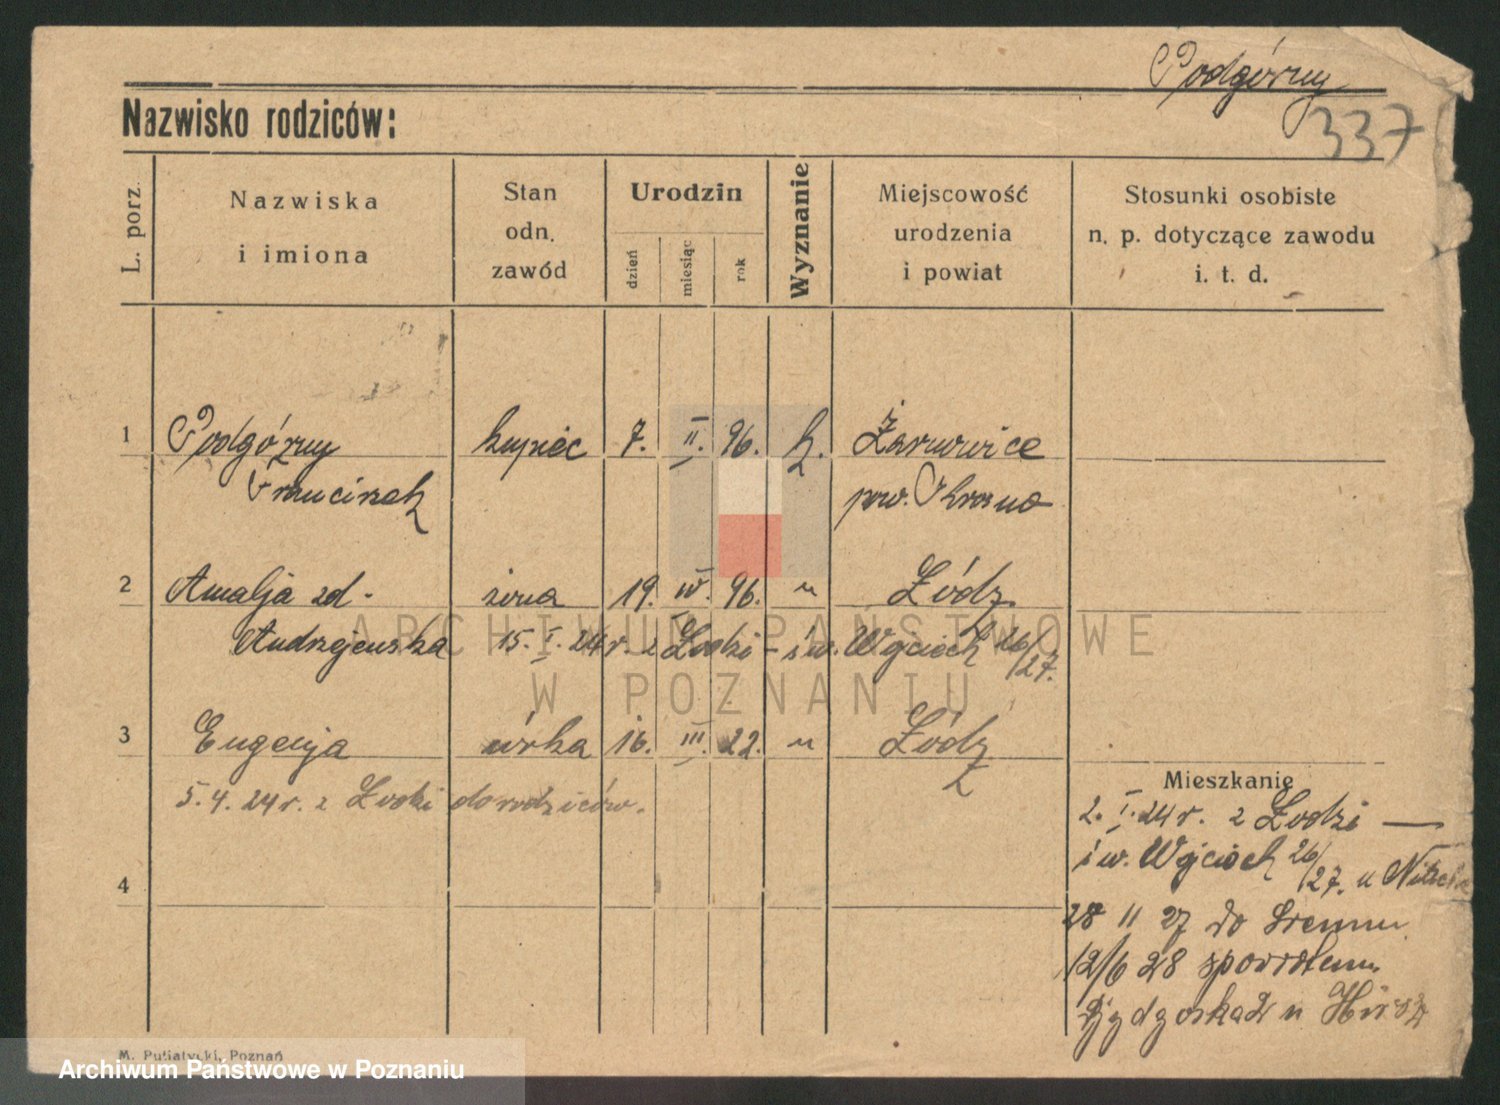 Podgórny
337
Nazwisko rodziców:
L. porz.
Nazwiska
i imiona
Stan
odn.
zawód
Urodzin
dzień
miesiąc
rok
Wyznanie
Miejscowość
urodzenia
i powiat
Stosunki osobiste
n. p. dotyczące zawodu
i. t. d.
1 Podgórny kupiec 7. II. 96. k. Żarnowice
Franciszek pow. Krosno
2 Amalja zd. żona 19. IV. 96. " Łódz
Andrzejewska 15. I. 24 r. z Łodzi - św. Wojciech 26/27.
3 Eugenja córka 16. III. 22. " Łódz
5.4.24 r. z Łodzi do rodziców.
Mieszkanie
2. I. 24 r. z Łodzi —
św. Wojciech 26/27. u
4
28 II 27 do Śremu
12/6 28 spowrotem
u
M. Putiatycki, Poznań
ARCHIWUM PAŃSTWOWE
W POZNANIU
Archiwum Państwowe w Poznaniu